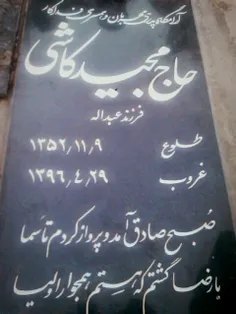 آرامگاه پدری مهربان و همسری فداکار
حاج مجید کاشی
فرزند عبداله
طلوع ۱۳۵۲٫۱۱٫۹
غروب ۱۳۹۶٫۴٫۲۹
صبح صادق آمد و پرواز کردم تا سما
با رضا گشتم که هستم همجوار اولیا